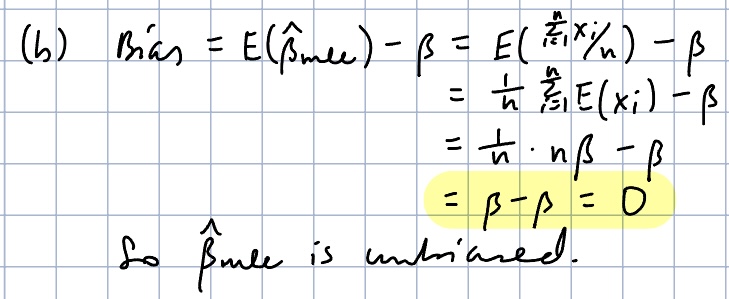 (b) Bias = E(β̂mle) - β = E(∑ⁿᵢ₌₁ xi/n) - β
= 1/n ∑ⁿᵢ₌₁ E(xi) - β
= 1/n · nβ - β
= β - β = 0
So β̂mle is unbiased.